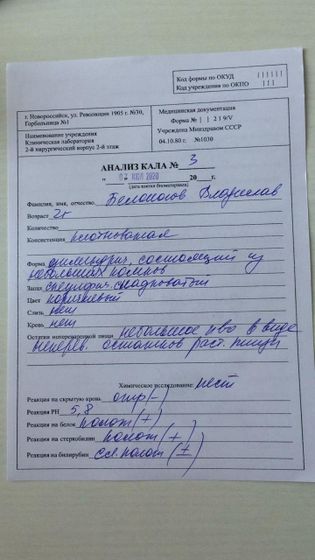 Код формы по ОКУД
Код учреждения по ОКПО
г. Новороссийск, ул. Революции 1905 г. №30,
Горбольница №1
Наименование учреждения
Клиническая лаборатория
2-й хирургический корпус 2-й этаж
Медицинская документация
Форма № 219/У
Учреждена Минздравом СССР
04.10.80 г. №1030
АНАЛИЗ КАЛА № 3
" 02 ИЮЛ 2020 20 г.
(дата взятия биоматериала)
Фамилия, имя, отчество Белоногов Владислав
Возраст 2г
Количество
Консистенция плотноватая
Форма цилиндрич, состоящий из
небольших комков
Запах специфич. сладковатый
Цвет коричневый
Слизь нет
Кровь нет
Остатки непереваренной пищи небольшое кво в виде
неперев. остатков раст. пищи
Химическое исследование:
Реакция на скрытую кровь отр (-)
Реакция PH 5,8
Реакция на белок полож (+)
Реакция на стеркобилин полож (+)
Реакция на билирубин сл. полож (±)